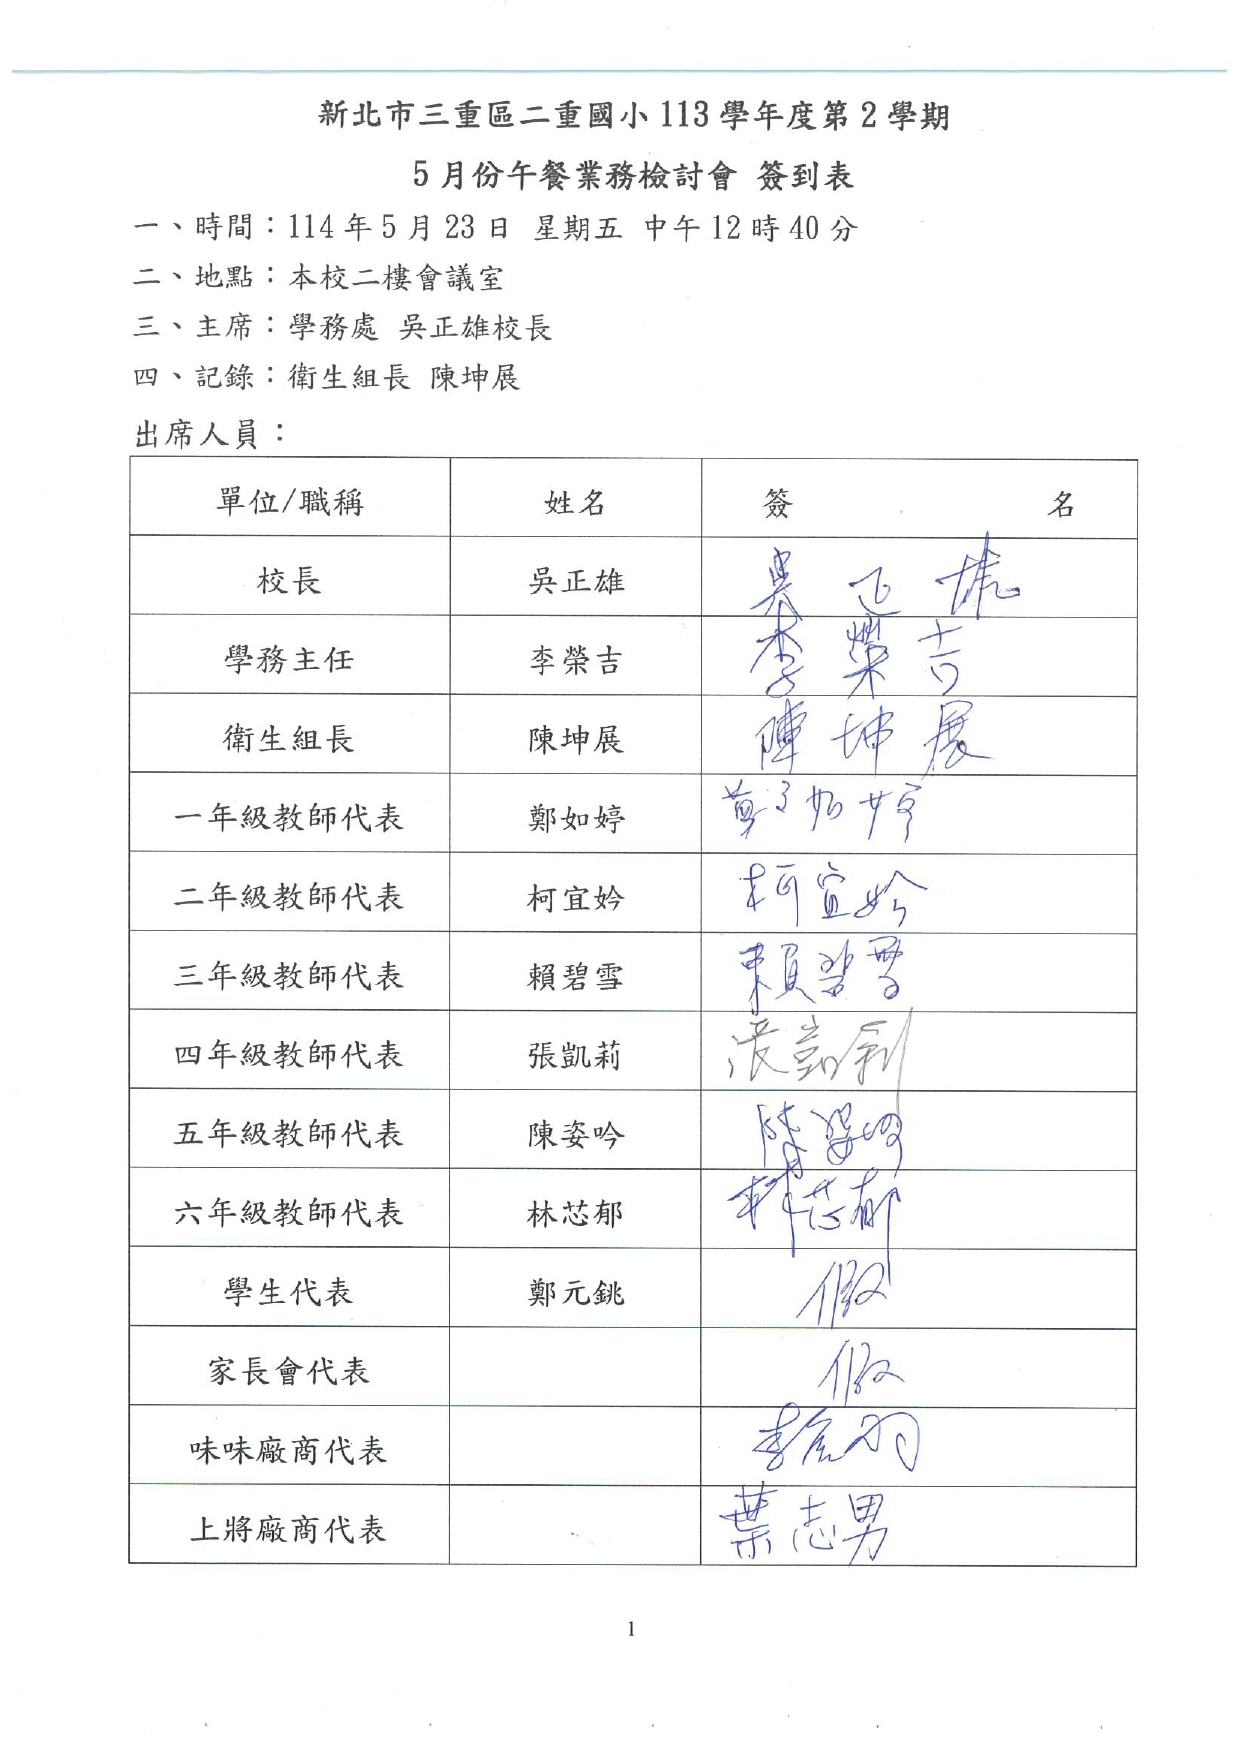 新北市三重區二重國小113學年度第2學期
5月份午餐業務檢討會 簽到表
一、時間：114年5月23日 星期五 中午12時40分
二、地點：本校二樓會議室
三、主席：學務處 吳正雄校長
四、記錄：衛生組長 陳坤展
出席人員：
單位/職稱 姓名 簽 名
校長 吳正雄 吳正雄
學務主任 李榮吉 李榮吉
衛生組長 陳坤展 陳坤展
一年級教師代表 鄭如婷 鄭如婷
二年級教師代表 柯宜妗 柯宜妗
三年級教師代表 賴碧雪 賴碧雪
四年級教師代表 張凱莉 張凱莉
五年級教師代表 陳姿吟 陳姿吟
六年級教師代表 林芯郁 林芯郁
學生代表 鄭元銚 假
家長會代表 假
味味廠商代表
上將廠商代表 葉志男
1